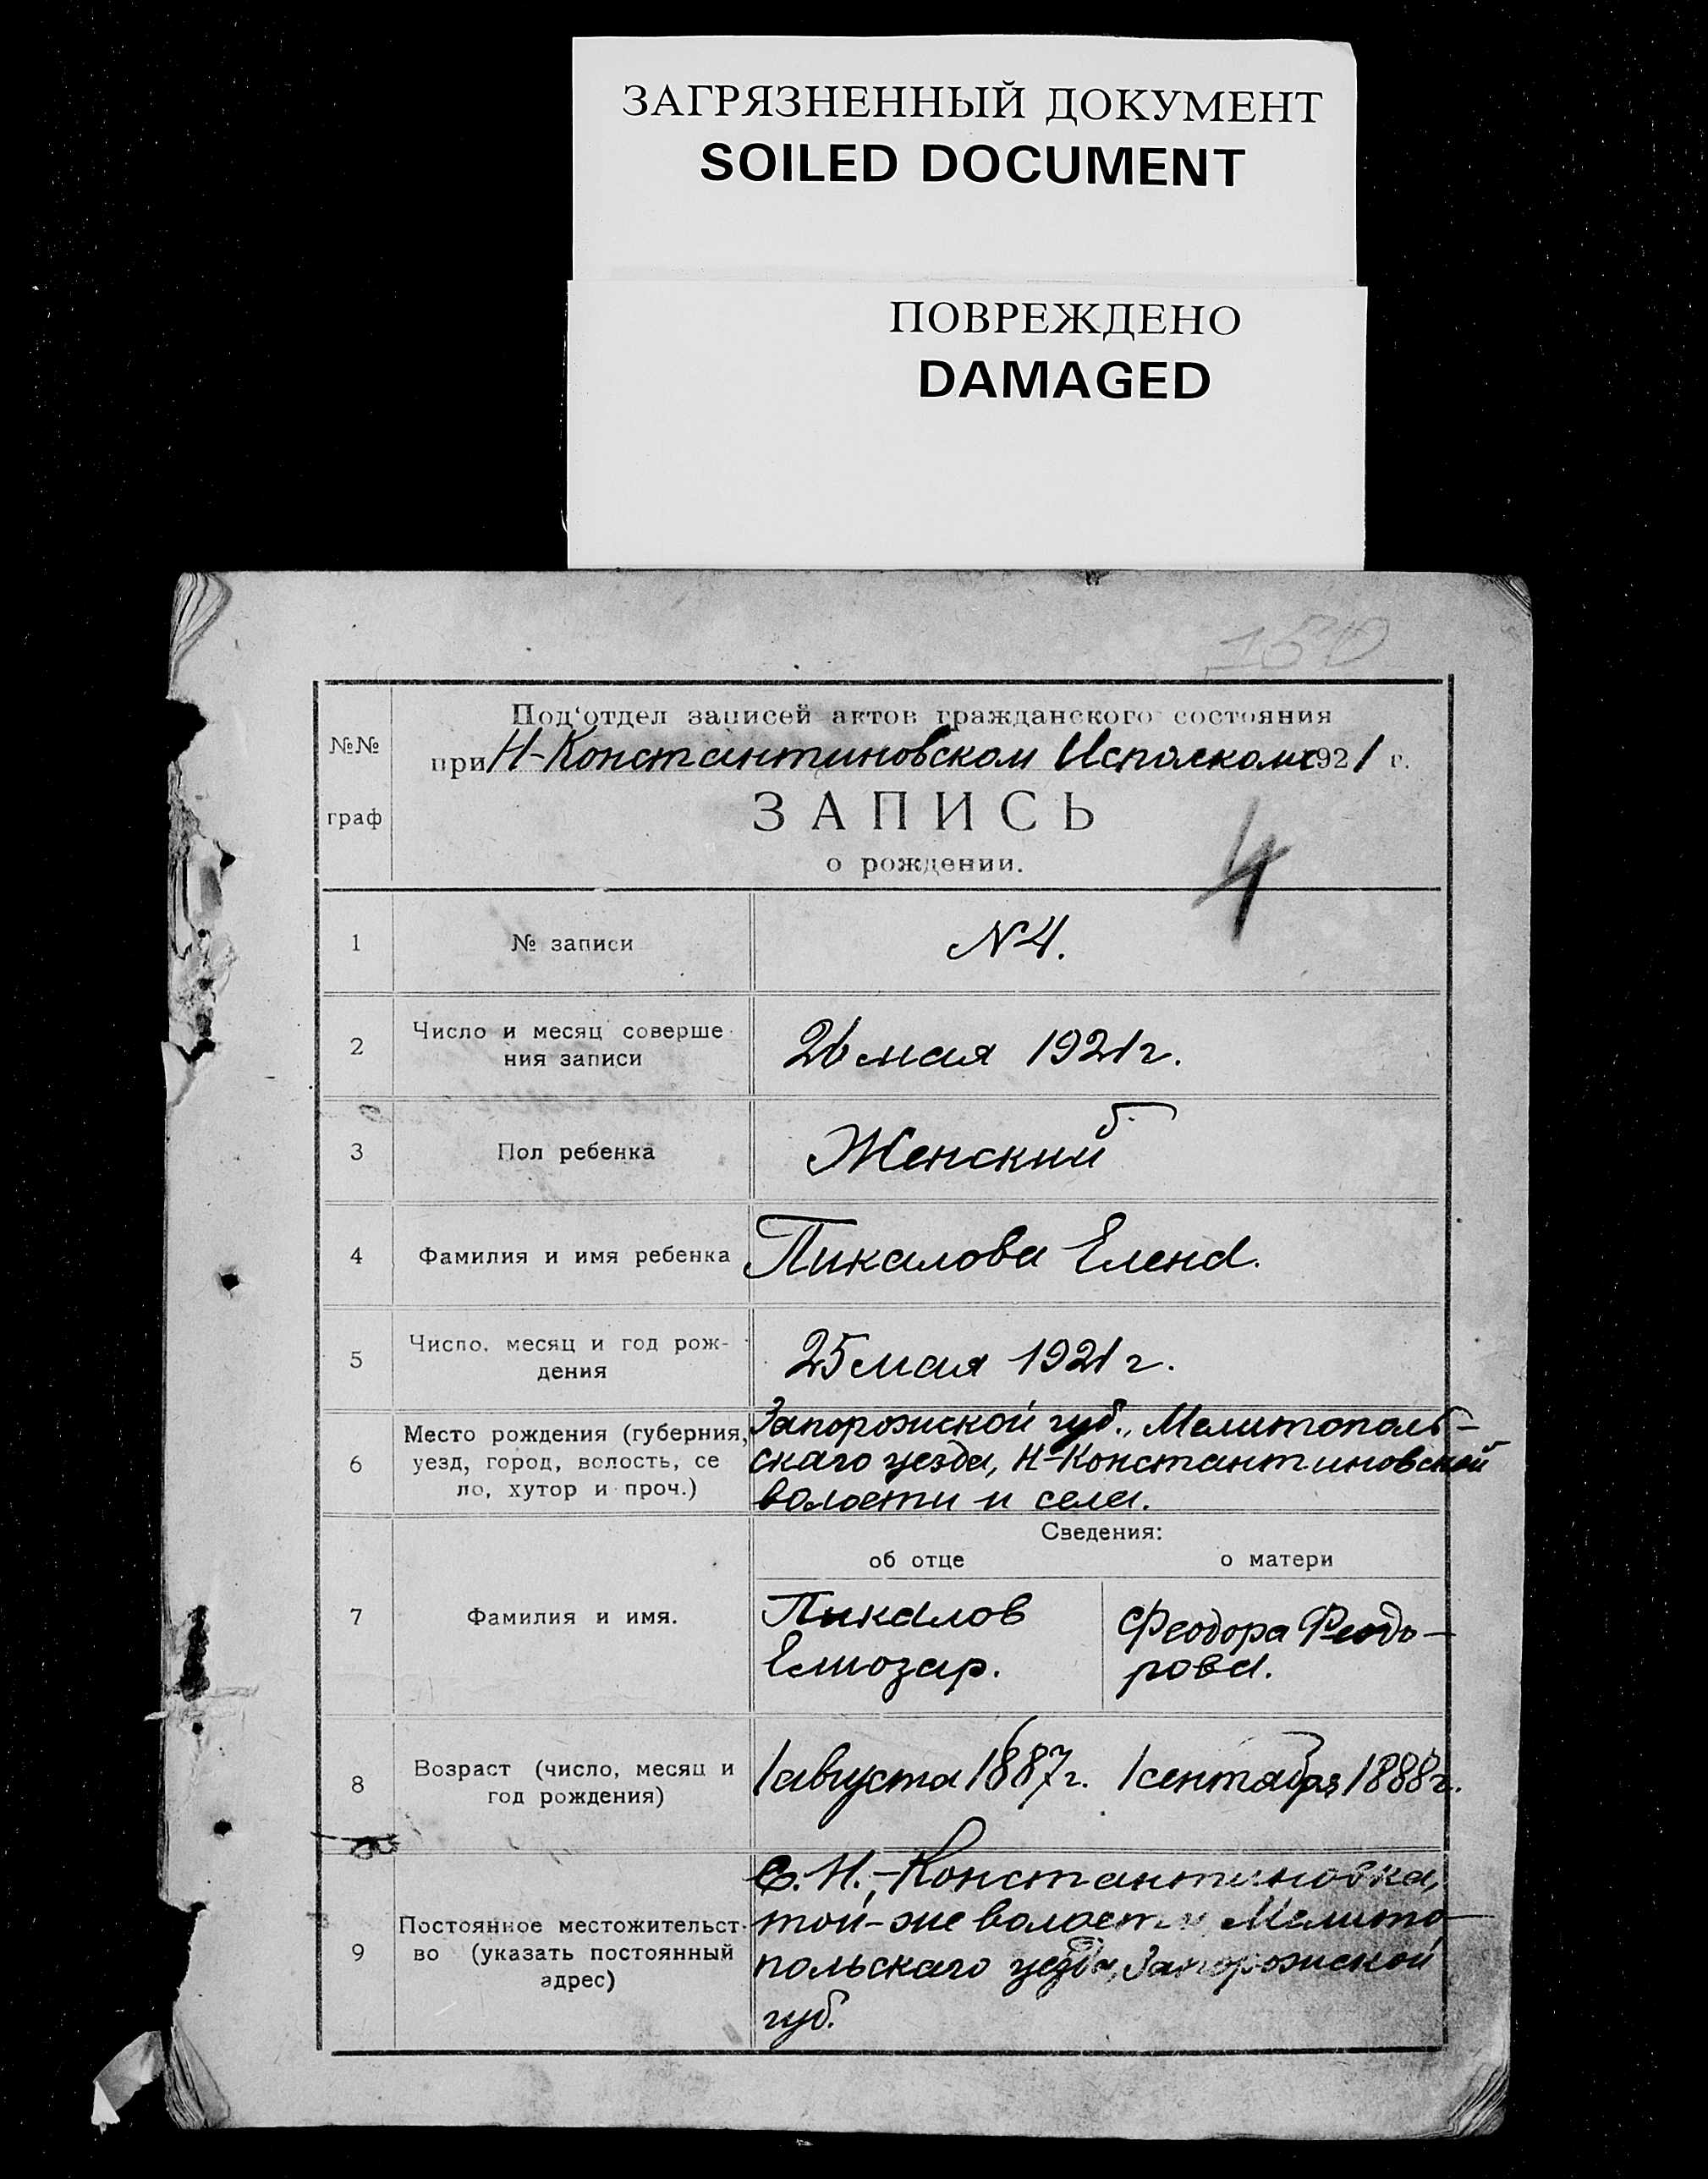 ЗАГРЯЗНЕННЫЙ ДОКУМЕНТ
SOILED DOCUMENT
ПОВРЕЖДЕНО
DAMAGED
150
№№
граф
Под'отдел записей актов гражданского состояния
при Н-Константиновском Исполкоме 1921 г.
ЗАПИСЬ
о рождении.
4
1
№ записи
N 4.
2
Число и месяц соверше
ния записи
26 мая 1921 г.
3
Пол ребенка
Женский
4
Фамилия и имя ребенка
Пикалова Елена.
5
Число, месяц и год рож-
дения
25 мая 1921 г.
6
Место рождения (губерния,
уезд, город, волость, се
ло, хутор и проч.)
Запорожской губ., Мелитополь-
скаго уезда, Н-Константиновской
волости и села.
Сведения:
об отце
о матери
7
Фамилия и имя.
Пикалов
Елиозар.
Феодора Феодо-
рова.
8
Возраст (число, месяц и
год рождения)
1 августа 1887 г.
1 сентября 1888 г.
9
Постоянное местожительст-
во (указать постоянный
адрес)
С. Н.-Константиновка,
той-же волости, Мелито-
польскаго уезда, Запорожской
губ.